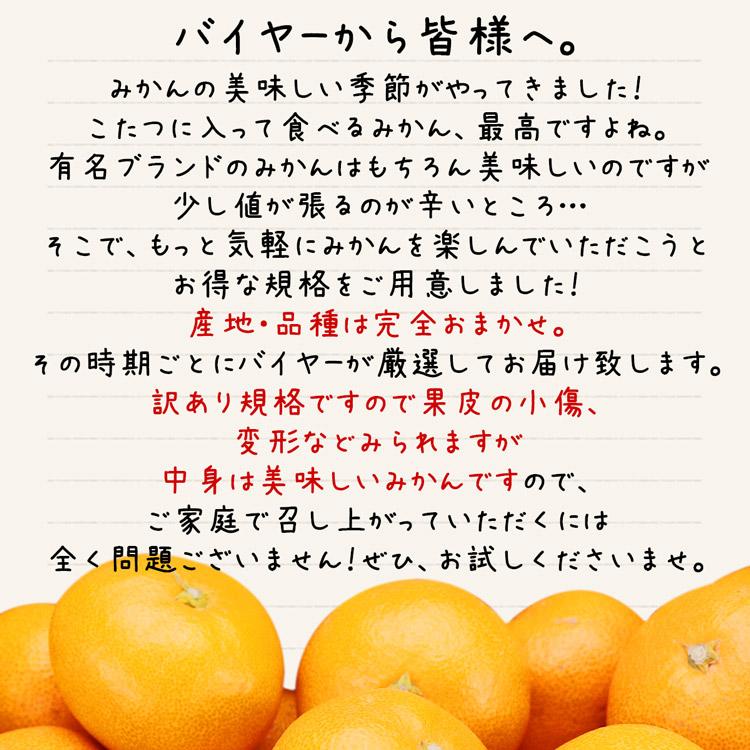 バイヤーから皆様へ。
みかんの美味しい季節がやってきました!
こたつに入って食べるみかん、最高ですよね。
有名ブランドのみかんはもちろん美味しいのですが
少し値が張るのが辛いところ…
そこで、もっと気軽にみかんを楽しんでいただこうと
お得な規格をご用意しました!
産地・品種は完全おまかせ。
その時期ごとにバイヤーが厳選してお届け致します。
訳あり規格ですので果皮の小傷、
変形などみられますが
中身は美味しいみかんですので、
ご家庭で召し上がっていただくには
全く問題ございません!ぜひ、お試しくださいませ。